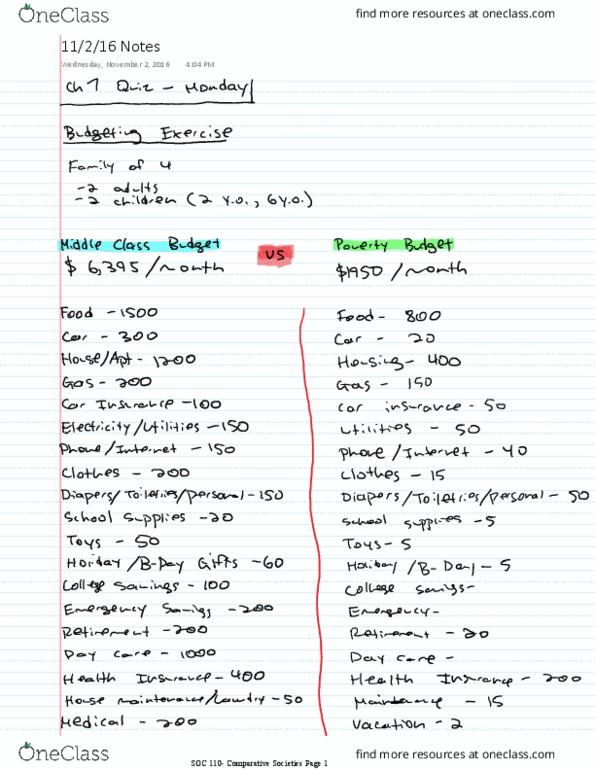 OneClass
find more resources at oneclass.com
11/2/16 Notes
Wednesday, November 2, 2016 4:04 PM
Ch 7 Quiz - Monday!
Budgeting Exercise
Family of 4
-2 adults
-2 children (2 y.o., 6 y.o.)
Middle Class Budget
$6,395/month
VS
Poverty Budget
$1950/month
Food - 1500
Car - 300
House/Apt - 1200
Gas - 200
Car Insurance - 100
Electricity/Utilities - 150
Phone/Internet - 150
Clothes - 200
Diapers/Toiletries/personal - 150
School Supplies - 20
Toys - 50
Horiday/B-Day Gifts - 60
College Savings - 100
Emergency Savings - 200
Retirement - 200
Day care - 1000
Health Insurance - 400
House maintenance/Laundry - 50
Medical - 200
Food - 800
Car - 20
Housing - 400
Gas - 150
Car insurance - 50
Utilities - 50
Phone/Internet - 40
Clothes - 15
Diapers/Toiletries/personal - 50
School supplies - 5
Toys - 5
Holiday/B-Day - 5
College savings -
Emergency -
Retirement - 20
Day care -
Health Insurance - 200
Maintenance - 15
Vacation - 2
OneClass
SOC 110- Comparative Societies Page 1
find more resources at oneclass.com